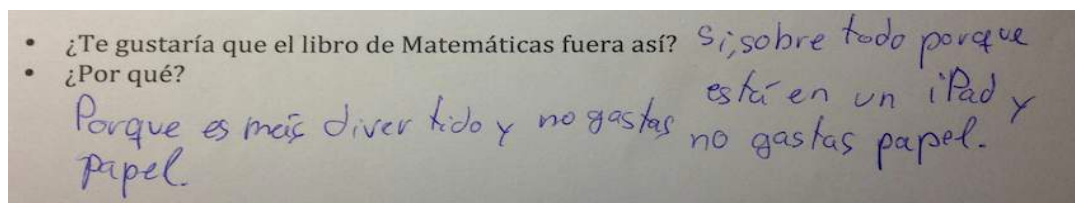 • ¿Te gustaría que el libro de Matemáticas fuera así? Si, sobre todo porque
está en un iPad y
no gastas papel.
• ¿Por qué?
Porque es más divertido y no gastas
papel.